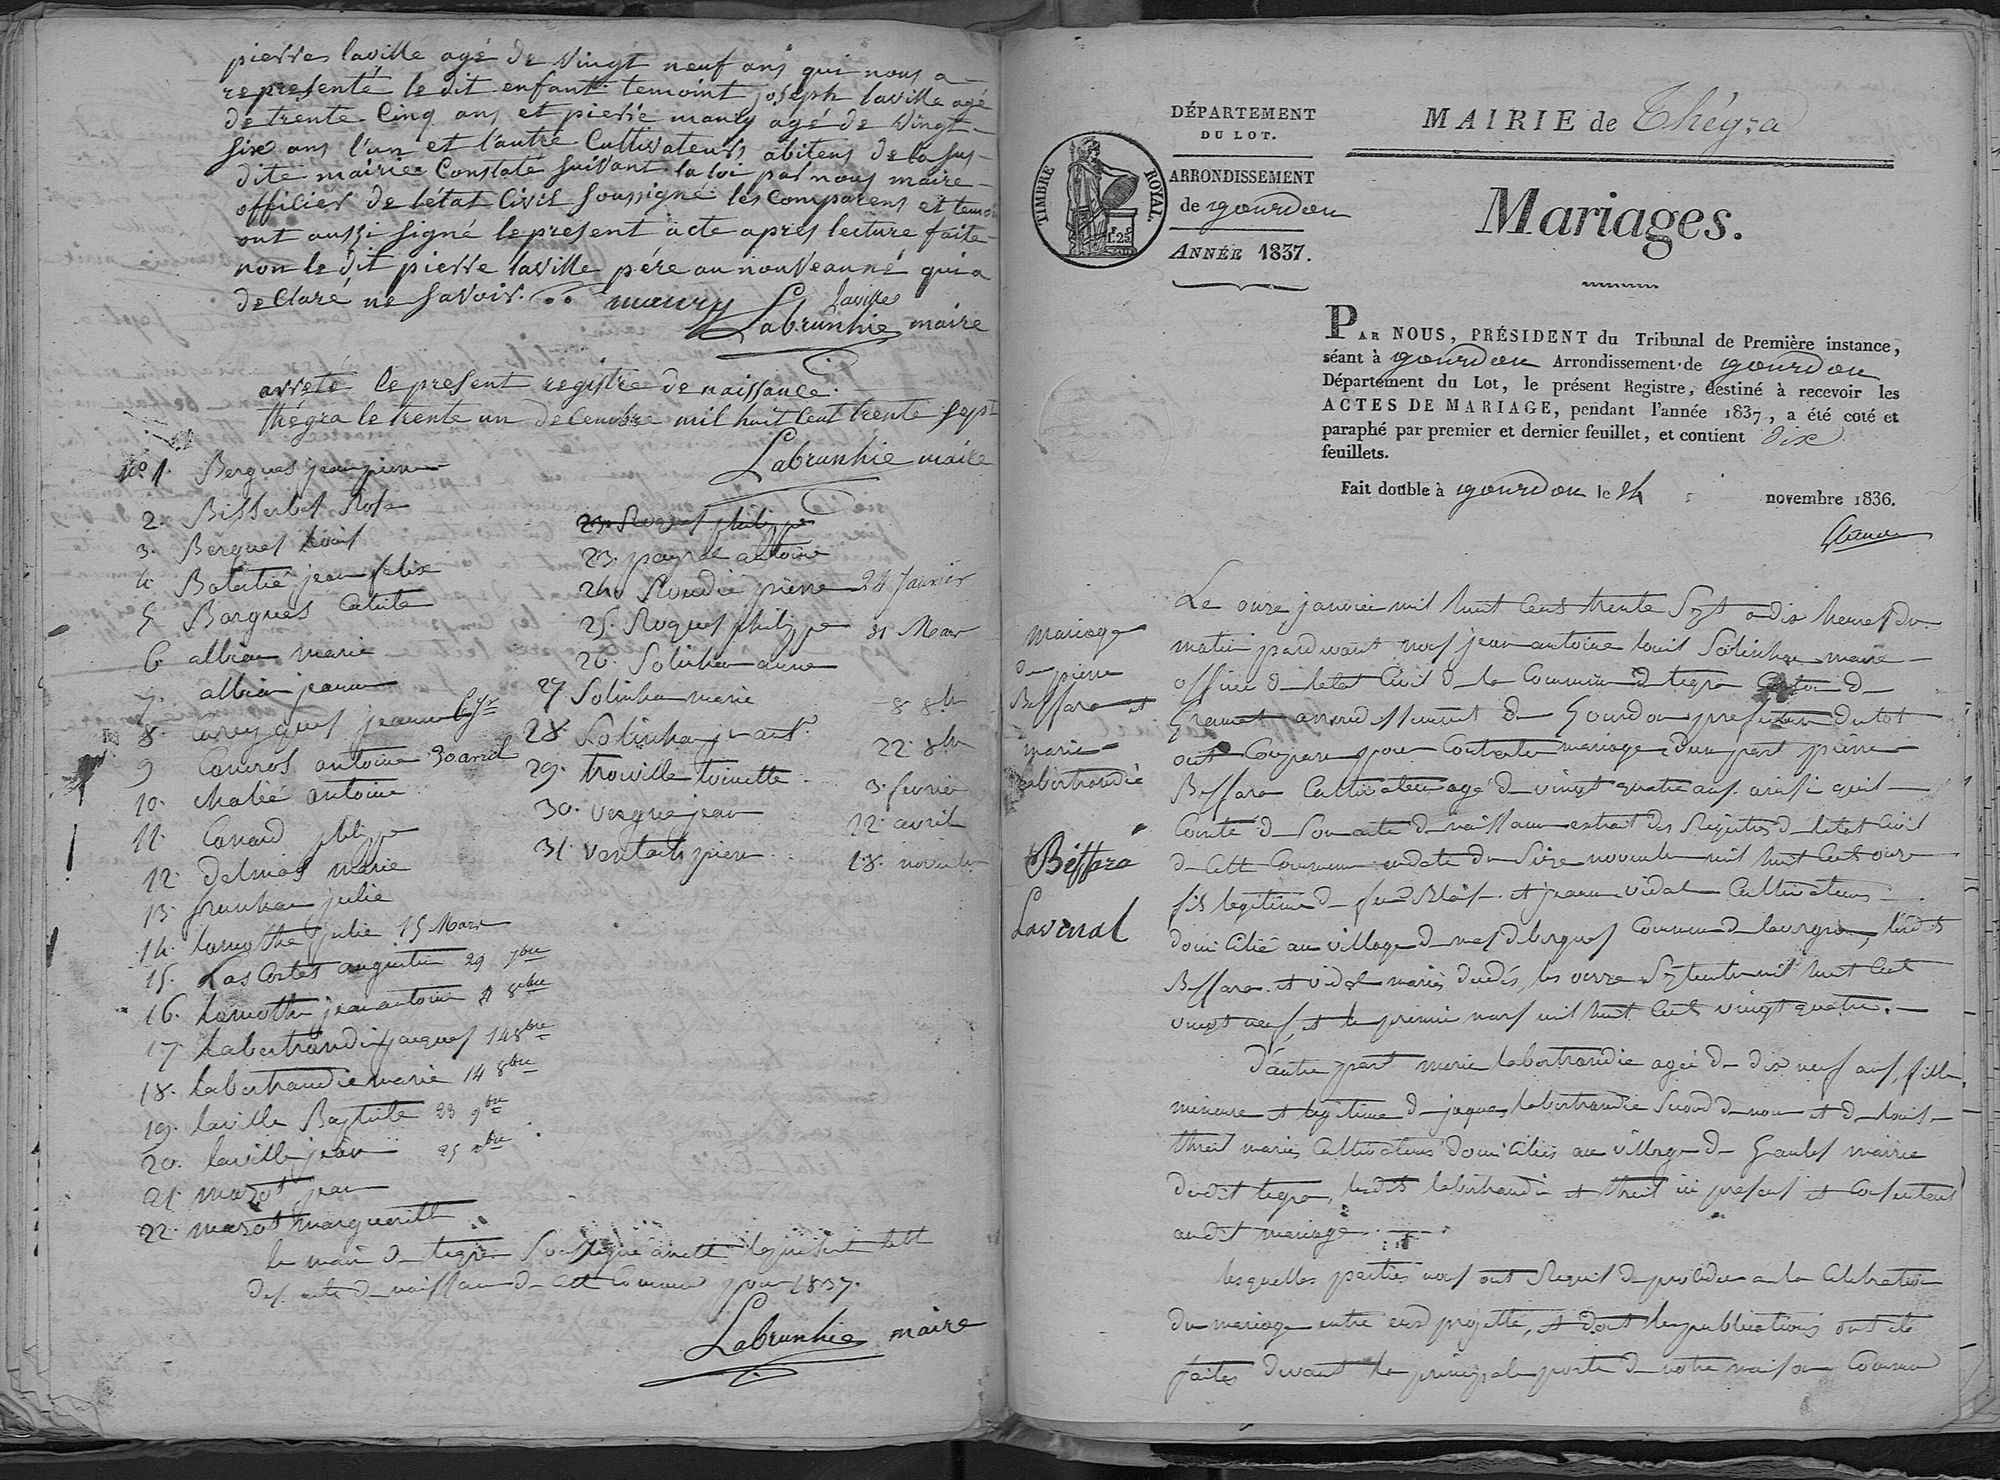 pierre laville agé de vingt neuf ans qui nous a
representé le dit enfant temoint joseph laville agé
de trente Cinq ans et pierre maury agé de vingt
six ans l'un et l'autre Cultivateurs abitens de la sus
dite mairie Constaté suivant la loi par nous maire
officier de l'état Civil soussigné les Comparens et temoin
ont aussi signé le present acte apres lecture faite
non le dit pierre laville pére au nouveau né qui a
declaré ne savoir. maury Laville
Labrunhie maire
arreté le present registre de naissance.
thégra le trente un decembre mil huit Cent trente sept
Labrunhie maire
No 1. Bergues jean pierre
2. Bisserbet Rose
3. Bergues Louis
4 Batutié jean felix
5 Bargues
6 albien marie
7. albien jeanne
8. jeanne
9 Canros antoine 30 avril
10. Chabié antoine
11. Canard philippe
12. Delmas marie
13. julie
14. Lamothe julie 15 Mars
15. Las Costes augustin 29 7bre
16. Lamothe jean antoine 8bre
17. Labertrandie jacques 14 8bre
18. labertrandie marie 14 8bre
19. laville Baptiste 23 9bre
20. laville jean 25 Xbre
21. mazot jean
22. mazot marguerite
23. Roques philippe
23. payrol antoine
24. Roudie pierre 24 Janvier
25. Roques philippe 31 Mars
26. Solinhac anne
27 Solinhac marie 8 8bre
28. Solinhac jn ant. 22 8bre
29. trouille toinette 3 fevrier
30. vergne jean 12 avril
31. vantach pierre 18 novembre
le maire de tegra soussigné arrette le present
des actes de naissance de cette Commune pour 1837.
Labrunhie maire
DÉPARTEMENT
DU LOT.
ARRONDISSEMENT
de gourdon
ANNÉE 1837.
TIMBRE ROYAL.
MAIRIE de Thégra
Mariages.
PAR NOUS, PRÉSIDENT du Tribunal de Première instance,
séant à gourdon Arrondissement de gourdon
Département du Lot, le présent Registre, destiné à recevoir les
ACTES DE MARIAGE, pendant l'année 1837, a été coté et
paraphé par premier et dernier feuillet, et contient dix
feuillets.
Fait double à gourdon le 24 novembre 1836.
mariage
de pierre
Beffara et
marie
labertrandie
Béffara
Lavinal
Le onze janvier mil huit Cent trente Sept a dix heures du
matin pardevant nous jean antoine louis Solinhac maire
officier de letat Civil de la Commune de tegra Canton de
Gramat arrondissement de Gourdon du lot
ont Comparu pour Contracter mariage d'une part pierre
Beffara Cultivateur agé de vingt quatre ans ainsi quil
Conste de Son acte de naissance extrait des Régistres de letat Civil
de cette Commune en date du Seize novembre mil huit Cent onze
fils legitime de feu Blaise et jeanne vidal Cultivateurs
domicilié au village de mas de bergues Commune de lavergne, lesdits
Beffara et vidal mariés dècédés, les onze Septembre mil huit Cent
vingt neuf et le premier mars mil huit Cent vingt quatre.
D'autre part marie labertrandie agée de dix neuf ans, fille
mineure et legitime de jaques labertrandie Second de nom et de louise
theil mariés Cultivateurs domiciliés au village de Gaules mairie
dudit tegra, lesdits labertrandie et theil ici presens et Consentans
audit mariage.
lesquelles parties nous ont Requis de procéder a la Célébration
du mariage entre eux projetté, et dont les publications ont été
faites devant la principale porte de notre maison Commune